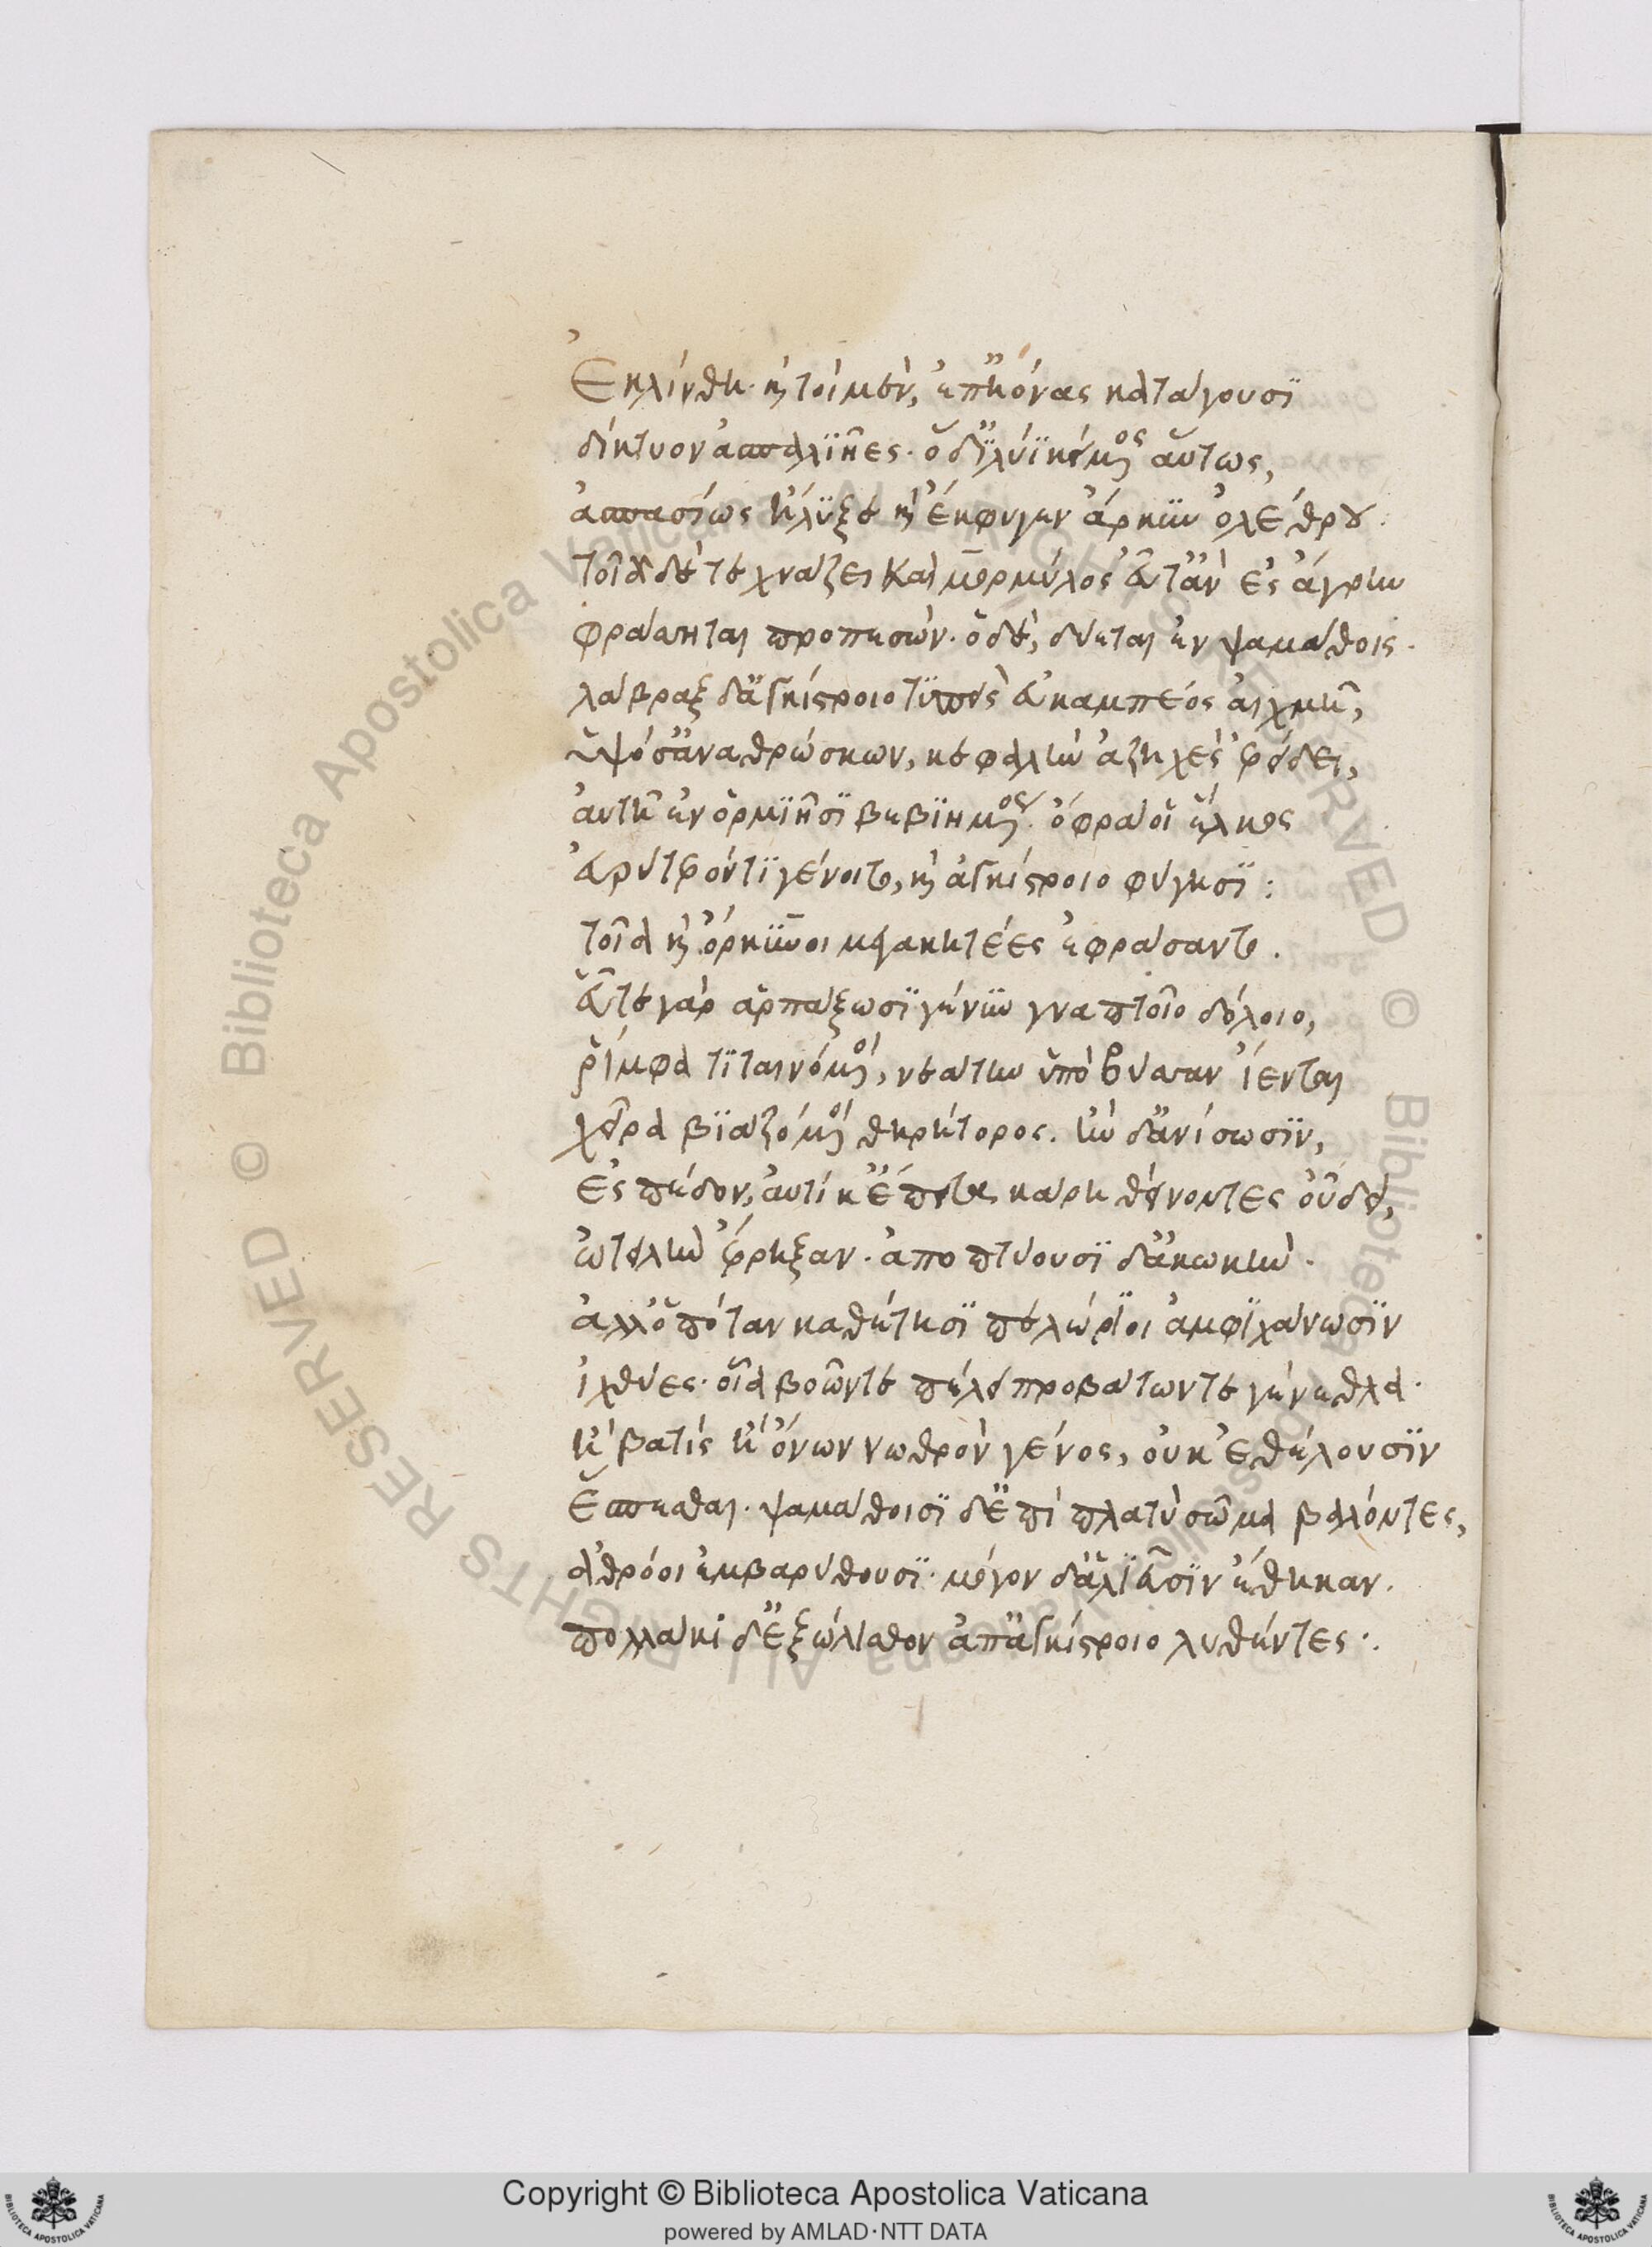 Ἐκλίνθη· καὶ τοὶ μὲν, ἐπ' ἠόνας κατάγουσι
δίκτυον ἀσπαλιῆες· ὁ δ' ἰλύϊ κείμενος αὔτως,
ἀσπασίως ἤλυξε καὶ ἔκφυγεν ἄρκυν ὀλέθρου.
τοῖα δέ τε χνάζει καὶ μορμύλος εὖτ' ἂν ἐς ἄγρην
φράσσηται προπεσών· ὁ δὲ, δύεται ἐν ψαμάθοις.
λάβραξ δ' ἀγκίστροιο τυπεὶς εὐκαμπέος αἰχμῇ,
ὑψόσ' ἀναθρώσκων, κεφαλὴν ἀζηχὲς ἐρείδει,
αὐτῇ ἐν ὁρμιῇσι βεβιημένος· ὄφρα οἱ ἕλκος
εὐρύτερόν τι γένοιτο, καὶ ἀγκίστροιο φύγησι:
τοῖα καὶ ὄρκυνοι μεγακητέες ἐφράσαντο.
εὖτε γὰρ ἁρπάξωσι γένυν γναπτοῖο δόλοιο,
ῥίμφα τιταινόμενοι, νεάτην ὑπὸ βύσσαν ἵενται
χεῖρα βιαζόμενοι θηρήτορος. ἢν δ' ἀνίσωσιν,
ἐς πέδον, αὐτίκ' ἔπειτα κάρη θείνοντες οὔδει,
ὠτειλὴν ἔρηξαν. ἀποπτύουσι δ' ἀκωκήν.
ἀλλ' ὁπόταν καθέτησι πελώριοι ἀμφιχάνωσιν
ἰχθύες· οἷα βοῶν τε πέλει προβάτων τε γένεθλα.
ἢ βατὶς ἢ ὄνων νωθρὸν γένος, οὐκ ἐθέλουσιν
ἕσπεσθαι. ψαμάθοισι δ' ἐπὶ πλατὺ σῶμα βαλόντες,
ἀθρόοι ἐμβαρύθουσι. μόγον δ' ἁλιεῦσιν ἔθηκαν.
πολλάκι δ' ἐξώλισθον ἀπ' ἀγκίστροιο λυθέντες·.
Copyright © Biblioteca Apostolica Vaticana
powered by AMLAD·NTT DATA